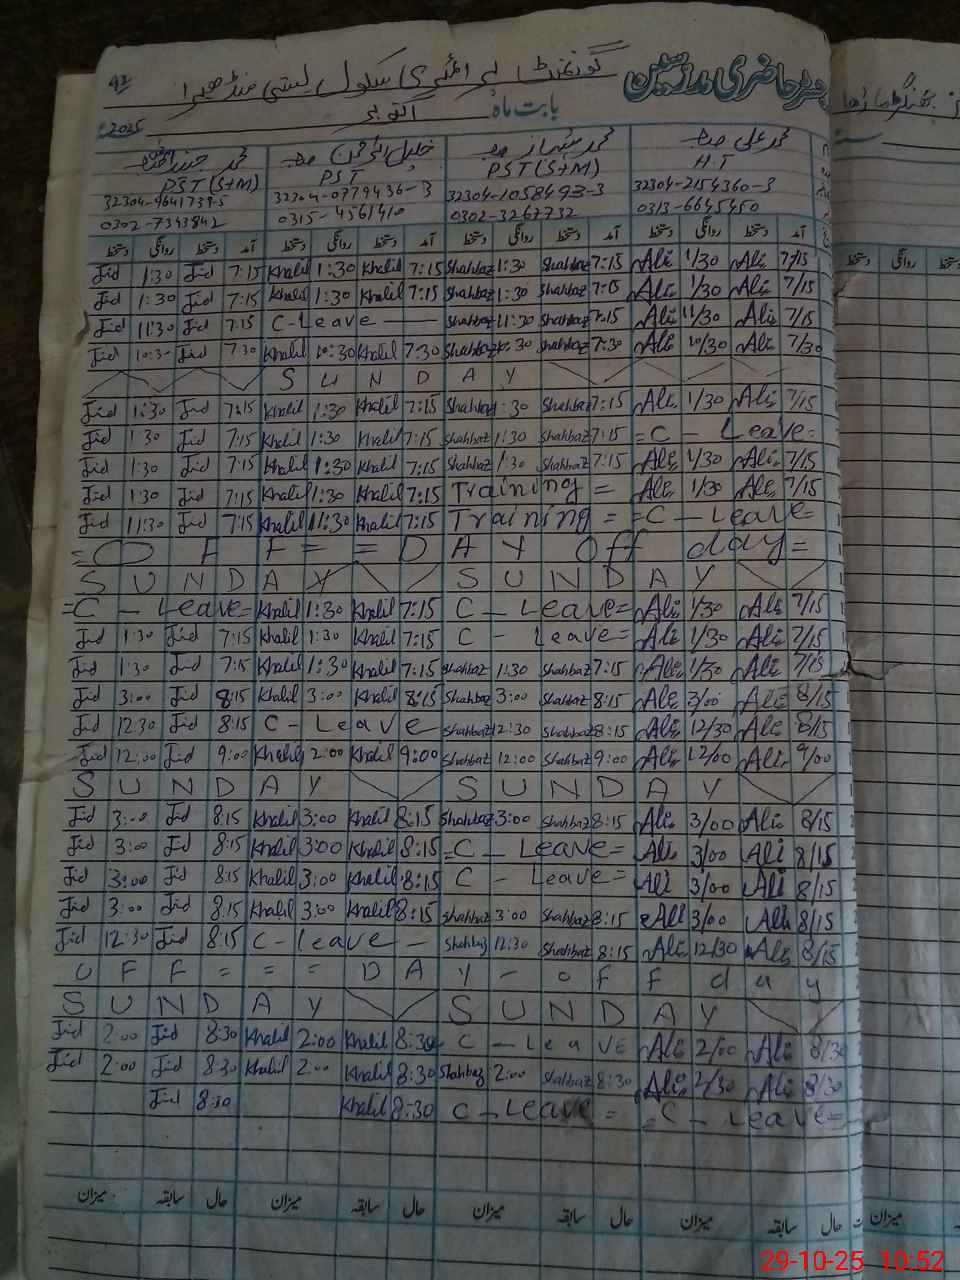 92 گورنمنٹ پرائمری سکول بستی منڈھیرا
حاضری مدرسین
2025ء بابت ماہ اکتوبر
محمد جنید خلیل الرحمٰن صاحب محمد شہباز صاحب محمد علی صاحب
PST (S+M) PST PST (S+M) H.T
32304-0779436-3 32304-1058493-3 32304-2154360-3
0302-7343842 0315-4561410 0302-3267732 0313-6645450
دستخط روانگی دستخط آمد دستخط روانگی دستخط آمد دستخط روانگی دستخط آمد دستخط روانگی دستخط آمد
Jid 1:30 Jid 7:15 Khalil 1:30 Khalil 7:15 Shahbaz 1:30 Shahbaz 7:15 Ali 1/30 Ali 7/15
Jid 1:30 Jid 7:15 Khalil 1:30 Khalil 7:15 Shahbaz 1:30 Shahbaz 7:15 Ali 1/30 Ali 7/15
Jid 11:30 Jid 7:15 C-Leave Shahbaz 11:30 Shahbaz 7:15 Ali 11/30 Ali 7/15
Jid 10:30 Jid 7:30 Khalil 10:30 Khalil 7:30 Shahbaz 10:30 Shahbaz 7:30 Ali 10/30 Ali 7/30
S U N D A Y
Jid 1:30 Jid 7:15 Khalil 1:30 Khalil 7:15 Shahbaz 1:30 Shahbaz 7:15 Ali 1/30 Ali 7/15
Jid 1:30 Jid 7:15 Khalil 1:30 Khalil 7:15 Shahbaz 1:30 Shahbaz 7:15 = C - Leave =
Jid 1:30 Jid 7:15 Khalil 1:30 Khalil 7:15 Shahbaz 1:30 Shahbaz 7:15 Ali 1/30 Ali 7/15
Jid 1:30 Jid 7:15 Khalil 1:30 Khalil 7:15 Training = Ali 1/30 Ali 7/15
Jid 11:30 Jid 7:15 Khalil 11:30 Khalil 7:15 Training = = C - Leave =
= O F F = = D A Y Off day =
S U N D A Y S U N D A Y
= C - Leave = Khalil 1:30 Khalil 7:15 C - Leave = Ali 1/30 Ali 7/15
Jid 1:30 Jid 7:15 Khalil 1:30 Khalil 7:15 C - Leave = Ali 1/30 Ali 7/15
Jid 1:30 Jid 7:15 Khalil 1:30 Khalil 7:15 Shahbaz 1:30 Shahbaz 7:15 Ali 1/30 Ali 7/15
Jid 3:00 Jid 8:15 Khalil 3:00 Khalil 8:15 Shahbaz 3:00 Shahbaz 8:15 Ali 3/00 Ali 8/15
Jid 12:30 Jid 8:15 C - Leave Shahbaz 12:30 Shahbaz 8:15 Ali 12/30 Ali 8/15
Jid 12:00 Jid 9:00 Khalil 12:00 Khalil 9:00 Shahbaz 12:00 Shahbaz 9:00 Ali 12/00 Ali 9/00
S U N D A Y S U N D A Y
Jid 3:00 Jid 8:15 Khalil 3:00 Khalil 8:15 Shahbaz 3:00 Shahbaz 8:15 Ali 3/00 Ali 8/15
Jid 3:00 Jid 8:15 Khalil 3:00 Khalil 8:15 = C - Leave = Ali 3/00 Ali 8/15
Jid 3:00 Jid 8:15 Khalil 3:00 Khalil 8:15 C - Leave = Ali 3/00 Ali 8/15
Jid 3:00 Jid 8:15 Khalil 3:00 Khalil 8:15 Shahbaz 3:00 Shahbaz 8:15 Ali 3/00 Ali 8/15
Jid 12:30 Jid 8:15 C - Leave - Shahbaz 12:30 Shahbaz 8:15 Ali 12/30 Ali 8/15
O F F = = = D A Y - o F F d a y
S U N D A Y S U N D A Y
Jid 2:00 Jid 8:30 Khalil 2:00 Khalil 8:30 C - Leave Ali 2/00 Ali 8/30
Jid 2:00 Jid 8:30 Khalil 2:00 Khalil 8:30 Shahbaz 2:00 Shahbaz 8:30 Ali 2/30 Ali 8/30
Jid 8:30 Khalil 8:30 C - Leave = = C - Leave =
میزان سابقہ حال میزان سابقہ حال میزان سابقہ حال میزان سابقہ حال میزان
29-10-25 10:52